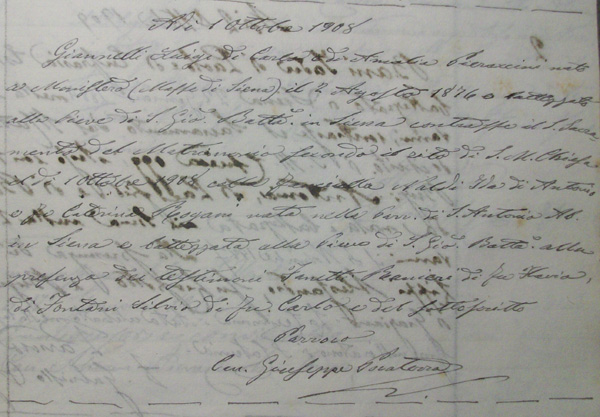 Adì 1 Ottobre 1908
Giannelli Luigi di Carlo e di Amalia Pieraccini nato
a Monistero (Masse di Siena) il 2 Agosto 1876 e battezzato
alla Pieve di S. Gio. Batta. in Siena contrasse il S. Sacra
mento del Matrimonio secondo il rito di S. M. Chiesa
il dì 1 Ottobre 1908 colla Naldi Ida di Antonio
e fu Caterina nata nella Parr. di S. Antonio Ab.
in Siena e battezzata alla Pieve di S. Gio. Batta. alla
presenza dei testimoni Ranieri di fu Flavio,
di Fontani Silvio di fu Carlo e del sottoscritto
Parroco
Giuseppe